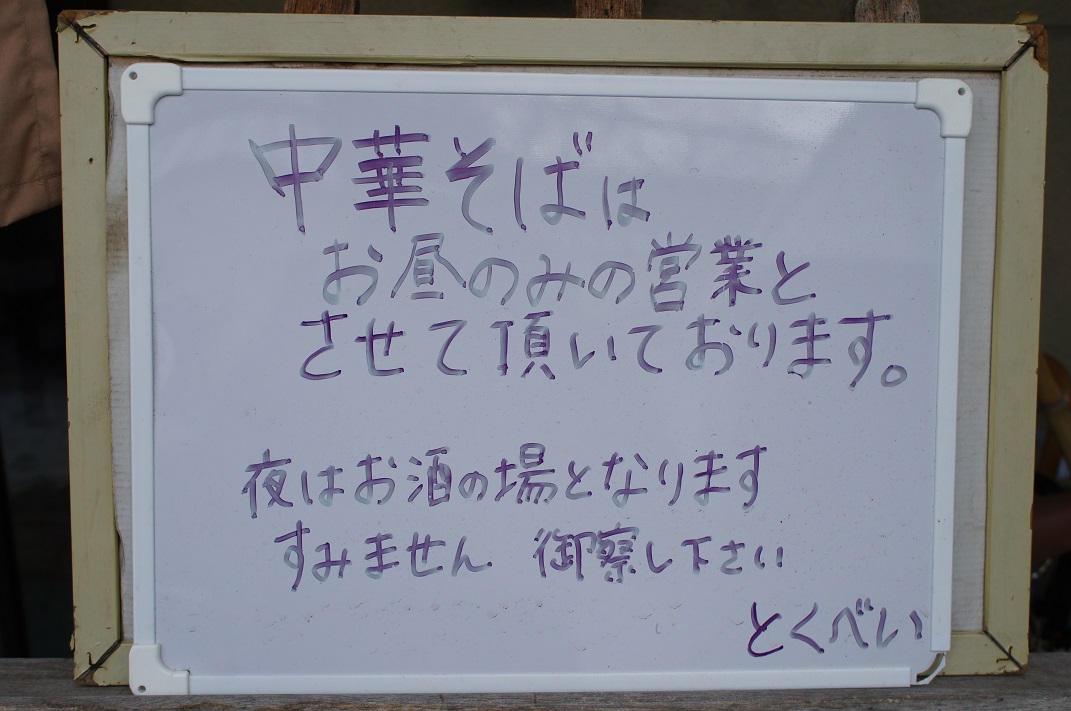 中華そばは
お昼のみの営業と
させて頂いております。
夜はお酒の場となります
すみません 御察し下さい
とくべい